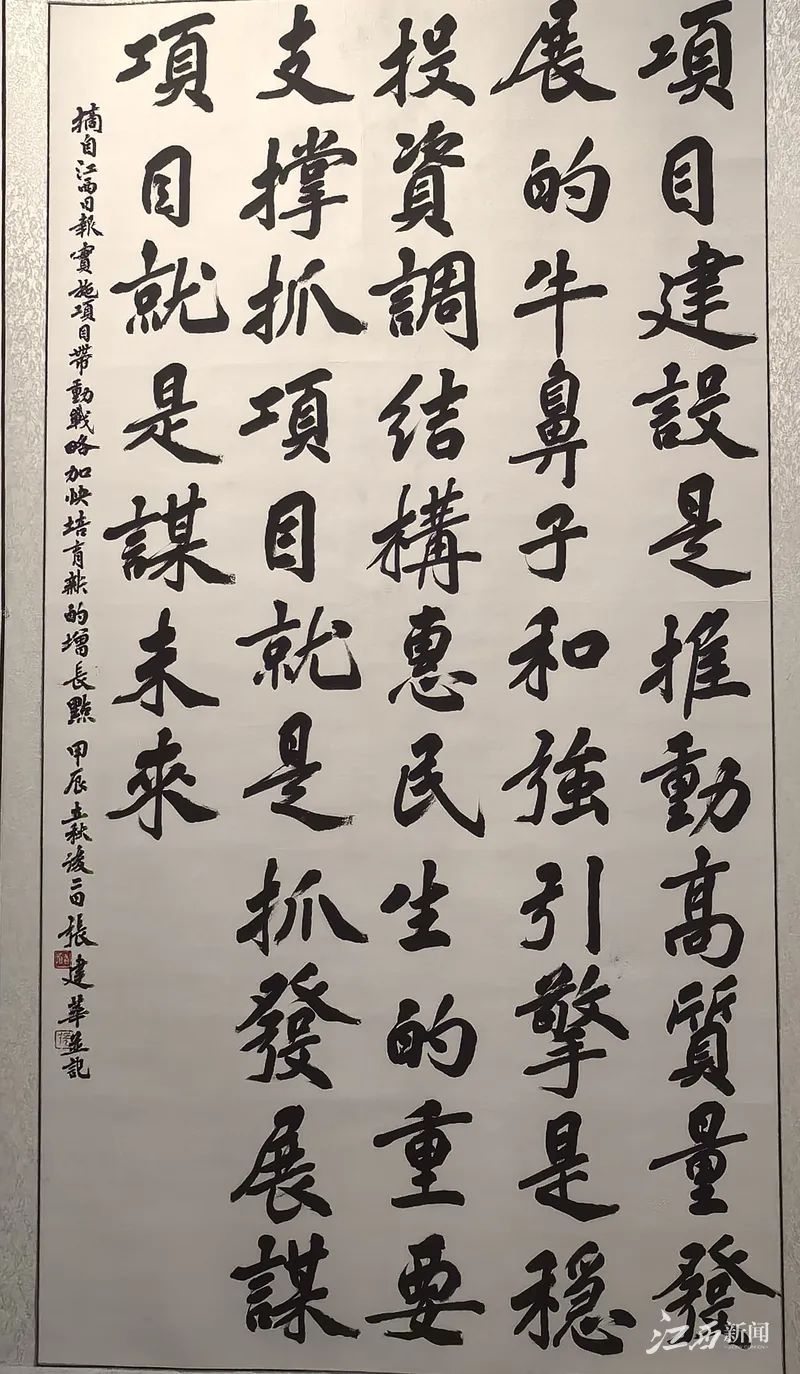 項目建設是推動高質量發
展的牛鼻子和強引擎是穩
投資調结構惠民生的重要
支撑抓項目就是抓發展謀
項目就是謀未來
摘自江西日報實施項目帶動戰略加快培育新的增長點 甲辰立秋後二日張建華并記
江西新闻